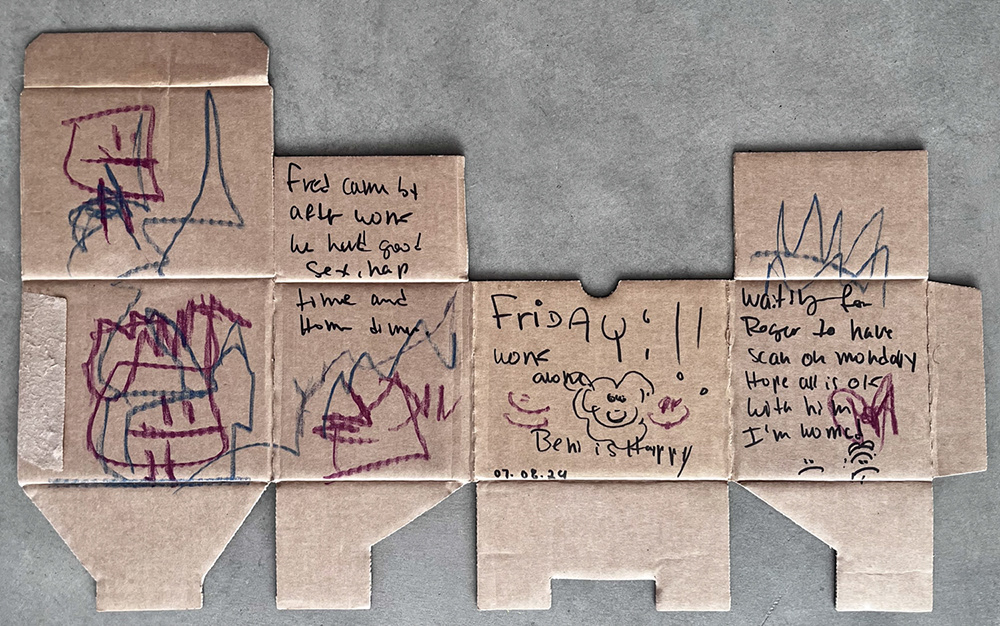 Fred cam by
aftr work
we had good
sex, hap
time and
Hom dinn
FriDAY!!!
work
Beni is Happy
07.08.24
waiting for
Roger to have
scan on monday
Hope all is ok
with him
I'm worried